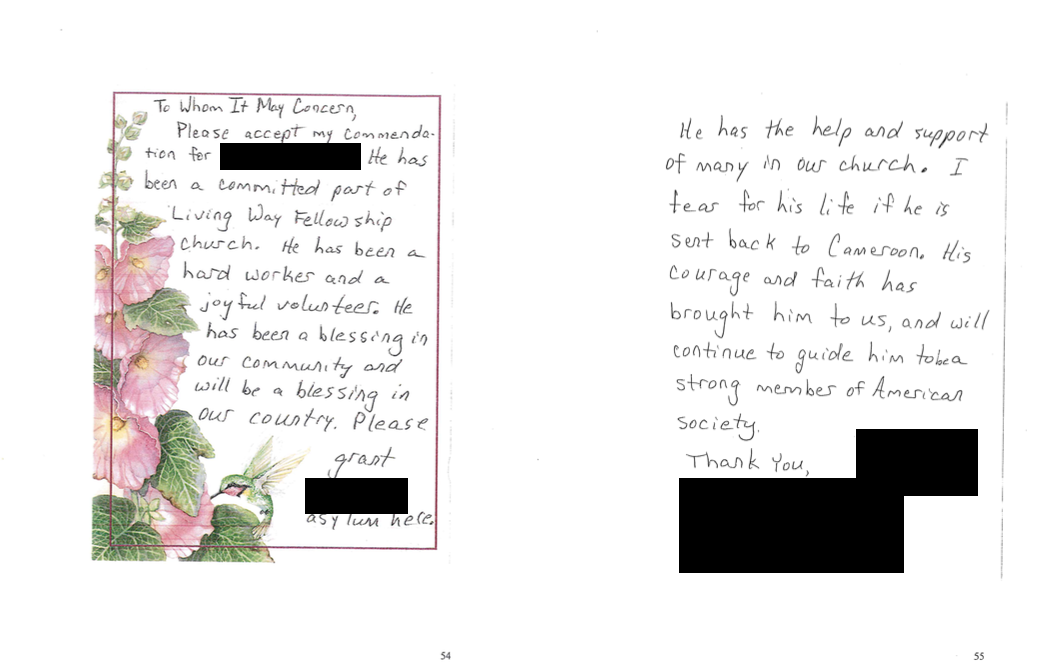 To Whom It May Concern,
Please accept my commenda-
tion for He has
been a committed part of
Living Way Fellowship
church. He has been a
hard worker and a
joyful volunteer. He
has been a blessing in
our community and
will be a blessing in
our country. Please
grant
asylum here.
54
He has the help and support
of many in our church. I
fear for his life if he is
sent back to Cameroon. His
courage and faith has
brought him to us, and will
continue to guide him to be a
strong member of American
society.
Thank You,
55